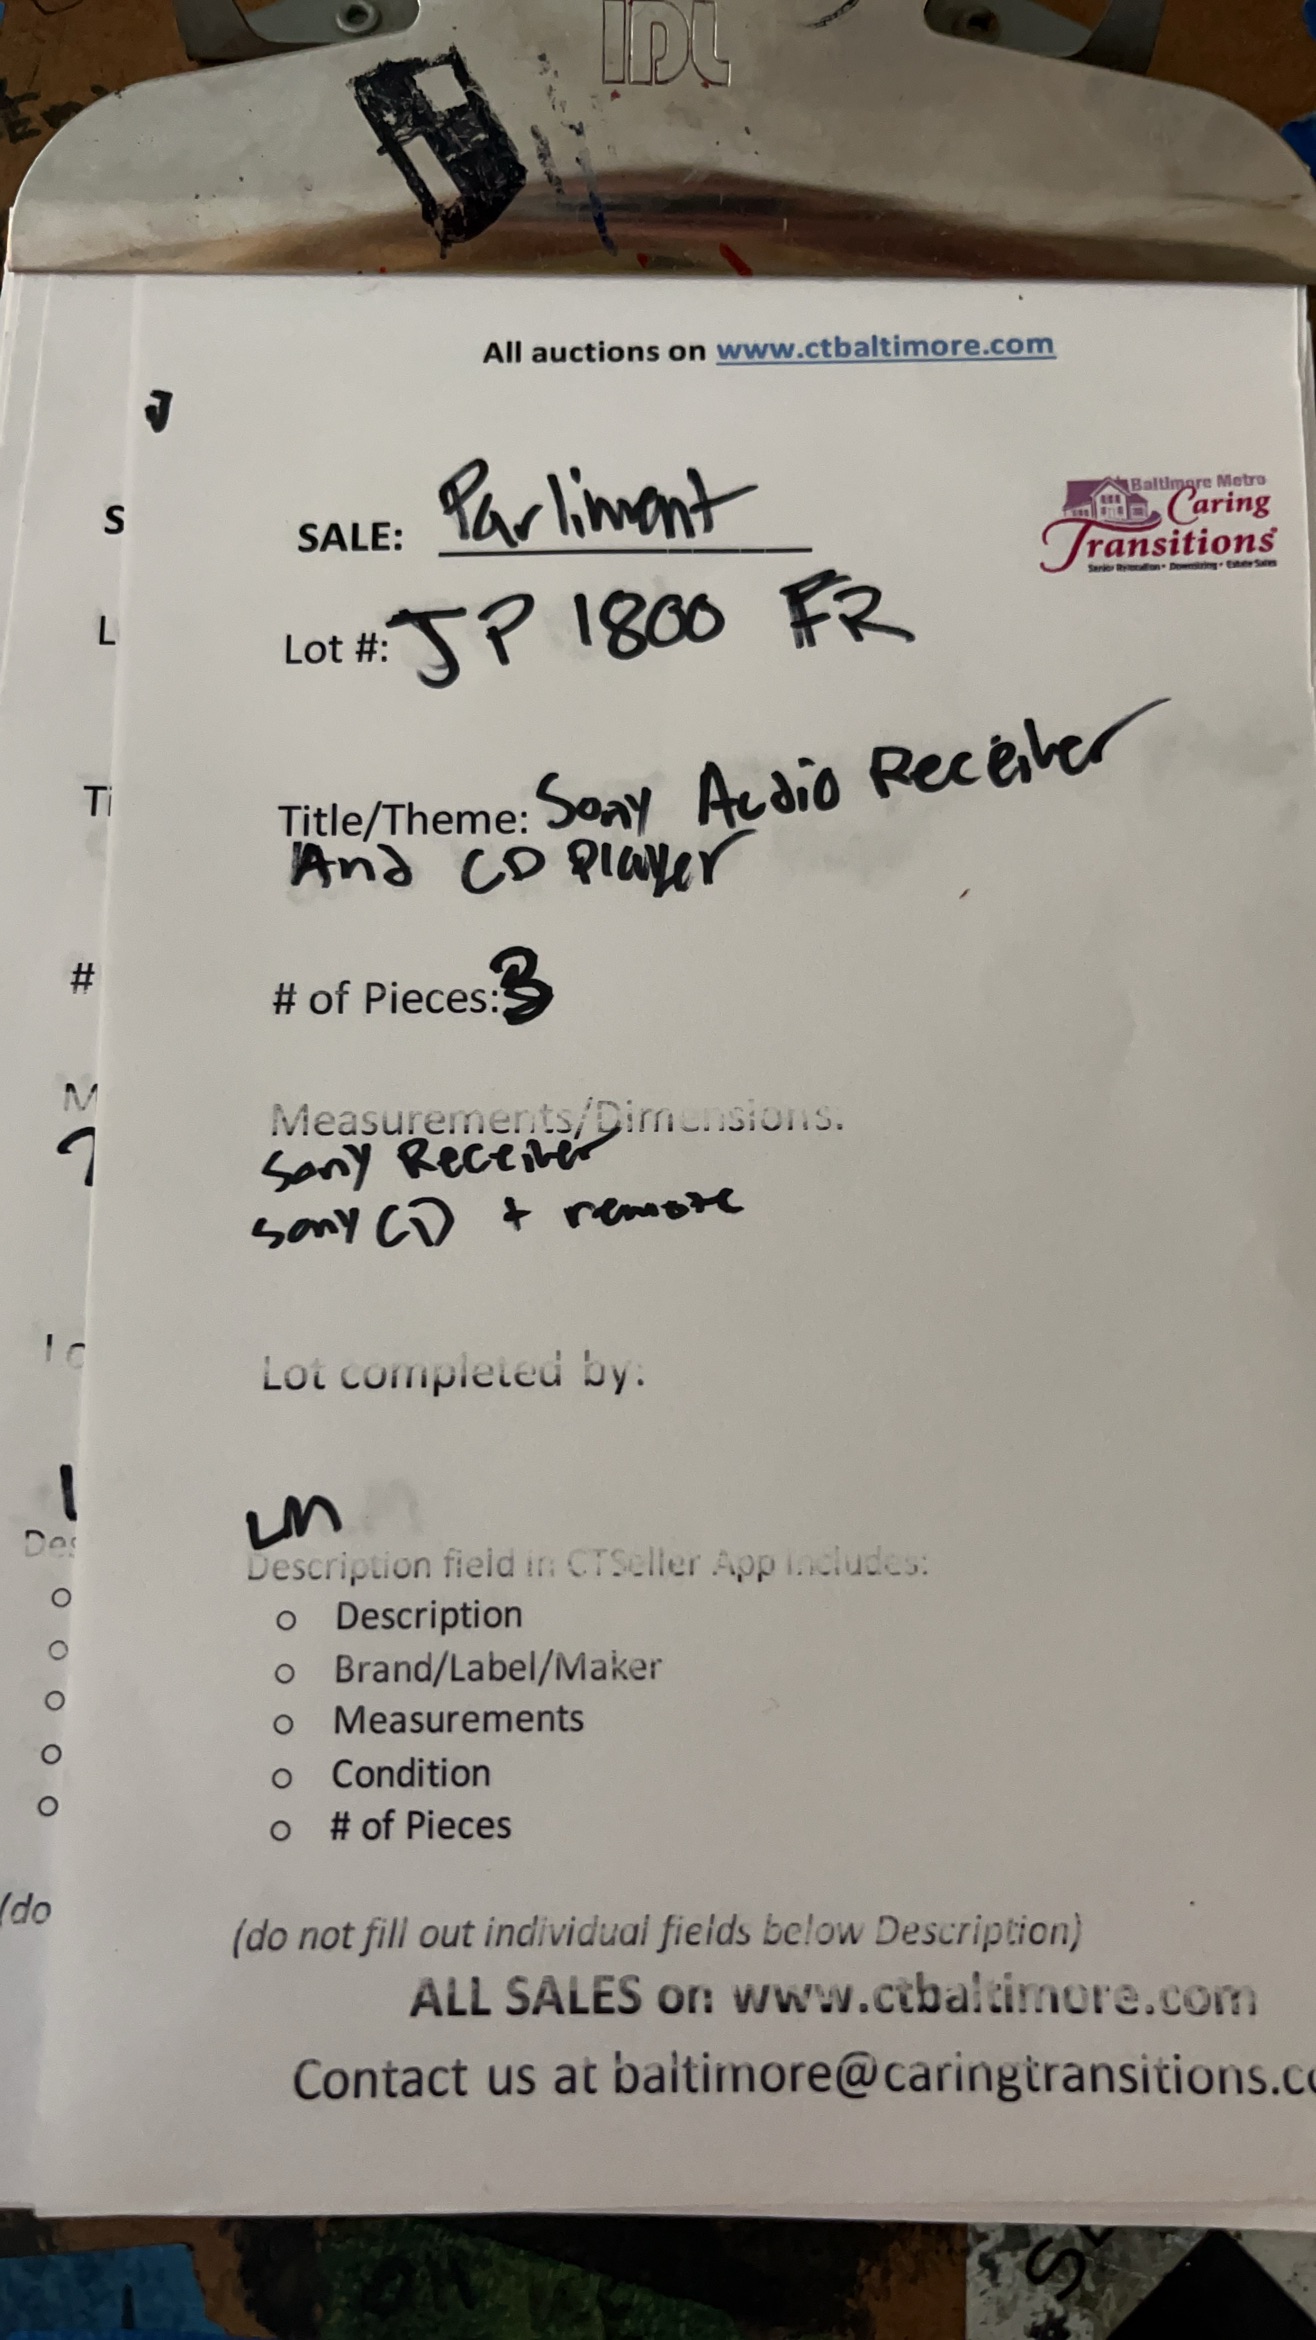 IDL
All auctions on www.ctbaltimore.com
J
SALE: Parliment
Baltimore Metro
Caring
Transitions
Senior Relocation • Downsizing • Estate Sales
Lot #: JP 1800 FR
Title/Theme: Sony Audio Receiver
And CD Player
# of Pieces: 3
Measurements/Dimensions:
Sony Receiver
Sony CD + remote
Lot completed by:
LM
Description field in CTSeller App includes:
o Description
o Brand/Label/Maker
o Measurements
o Condition
o # of Pieces
(do not fill out individual fields below Description)
ALL SALES on www.ctbaltimore.com
Contact us at baltimore@caringtransitions.co